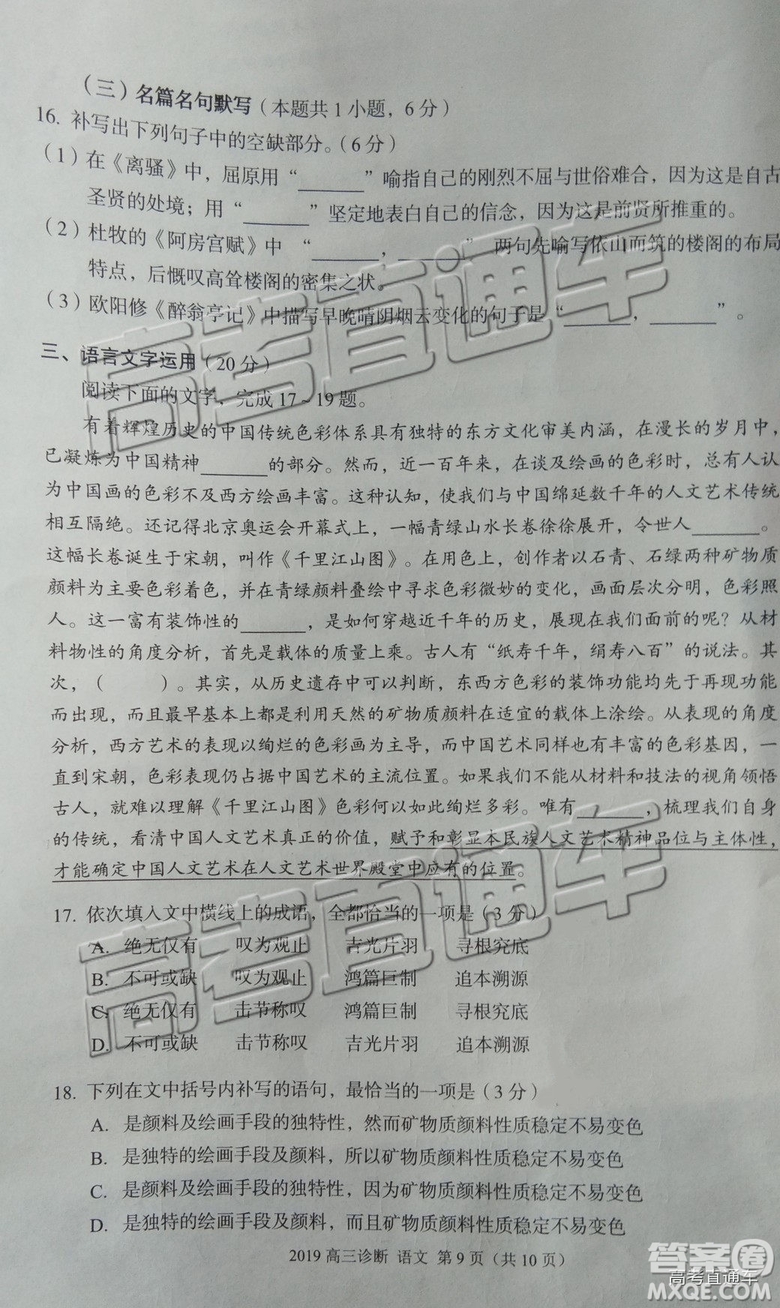 （三）名篇名句默写（本题共1小题，6分）
16. 补写出下列句子中的空缺部分。（6分）
（1）在《离骚》中，屈原用“______”喻指自己的刚烈不屈与世俗难合，因为这是自古
圣贤的处境；用“______”坚定地表白自己的信念，因为这是前贤所推重的。
（2）杜牧的《阿房宫赋》中 “______，______” 两句先喻写依山而筑的楼阁的布局
特点，后慨叹高耸楼阁的密集之状。
（3）欧阳修《醉翁亭记》中描写早晚晴阴烟云变化的句子是“______，______”。
三、语言文字运用（20分）
阅读下面的文字，完成17-19题。
有着辉煌历史的中国传统色彩体系具有独特的东方文化审美内涵，在漫长的岁月中，
已凝炼为中国精神______的部分。然而，近一百年来，在谈及绘画的色彩时，总有人认
为中国画的色彩不及西方绘画丰富。这种认知，使我们与中国绵延数千年的人文艺术传统
相互隔绝。还记得北京奥运会开幕式上，一幅青绿山水长卷徐徐展开，令世人______。
这幅长卷诞生于宋朝，叫作《千里江山图》。在用色上，创作者以石青、石绿两种矿物质
颜料为主要色彩着色，并在青绿颜料叠绘中寻求色彩微妙的变化，画面层次分明，色彩照
人。这一富有装饰性的______，是如何穿越近千年的历史，展现在我们面前的呢？从材
料物性的角度分析，首先是载体的质量上乘。古人有“纸寿千年，绢寿八百”的说法。其
次，（ ）。其实，从历史遗存中可以判断，东西方色彩的装饰功能均先于再现功能
而出现，而且最早基本上都是利用天然的矿物质颜料在适宜的载体上涂绘。从表现的角度
分析，西方艺术的表现以绚烂的色彩为主导，而中国艺术同样也有丰富的色彩基因，一
直到宋朝，色彩表现仍占据中国艺术的主流位置。如果我们不能从材料和技法的视角领悟
古人，就难以理解《千里江山图》色彩何以如此绚烂多彩。唯有______，梳理我们自身
的传统，看清中国人文艺术真正的价值，赋予和彰显本民族人文艺术精神品位与主体性，
才能确定中国人文艺术在人文艺术世界殿堂中应有的位置。
17. 依次填入文中横线上的成语，全都恰当的一项是（3分）
A. 绝无仅有 叹为观止 吉光片羽 寻根究底
B. 不可或缺 叹为观止 鸿篇巨制 追本溯源
C. 绝无仅有 击节称叹 鸿篇巨制 寻根究底
D. 不可或缺 击节称叹 吉光片羽 追本溯源
18. 下列在文中括号内补写的语句，最恰当的一项是（3分）
A. 是颜料及绘画手段的独特性，然而矿物质颜料性质稳定不易变色
B. 是独特的绘画手段及颜料，所以矿物质颜料性质稳定不易变色
C. 是颜料及绘画手段的独特性，因为矿物质颜料性质稳定不易变色
D. 是独特的绘画手段及颜料，而且矿物质颜料性质稳定不易变色
2019 高三诊断 语文 第9页（共10页）
高考直通车
高考直通车
答案卷
高考直通车
MXQE.COM